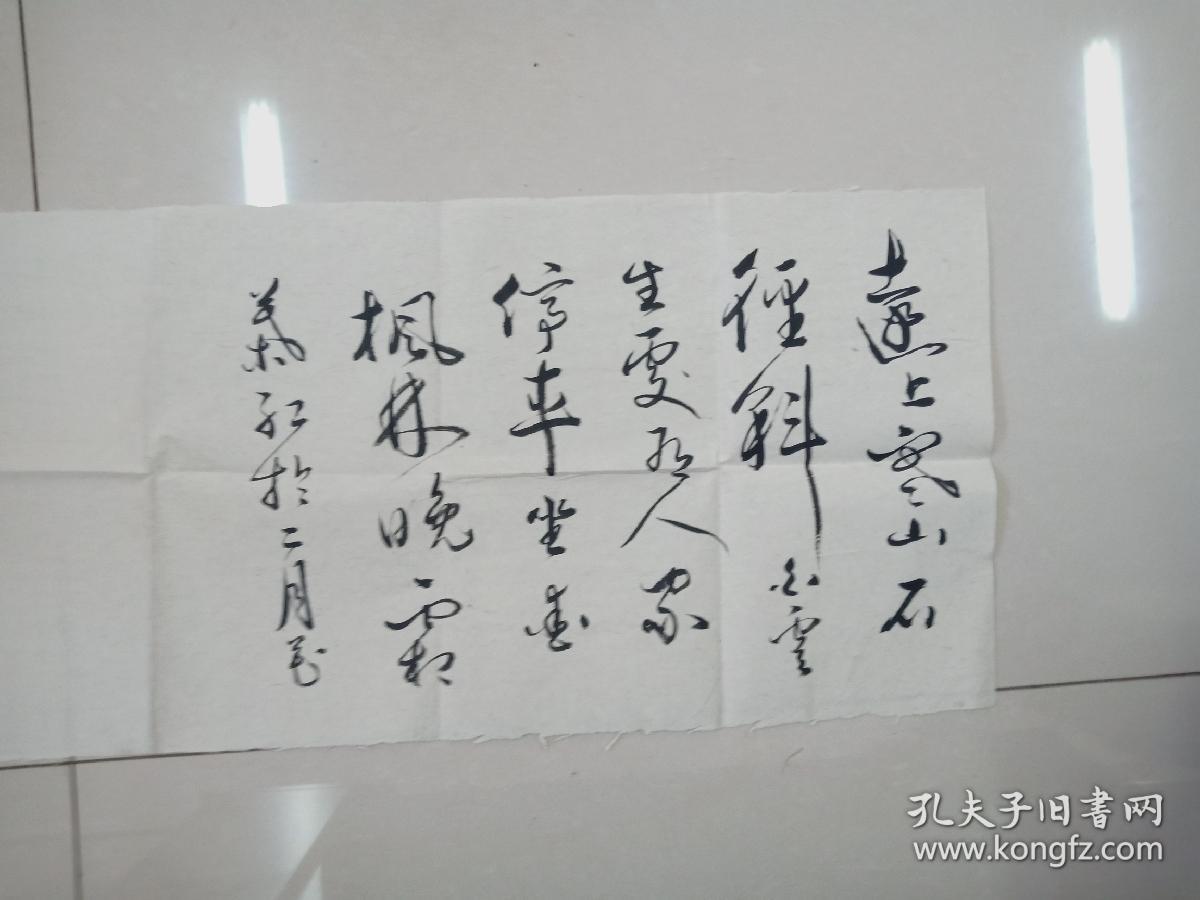 遠上寒山石
徑斜白雲
生處有人家
停車坐愛
楓林晚霜
葉紅於二月花
孔夫子旧书网
www.kongfz.com